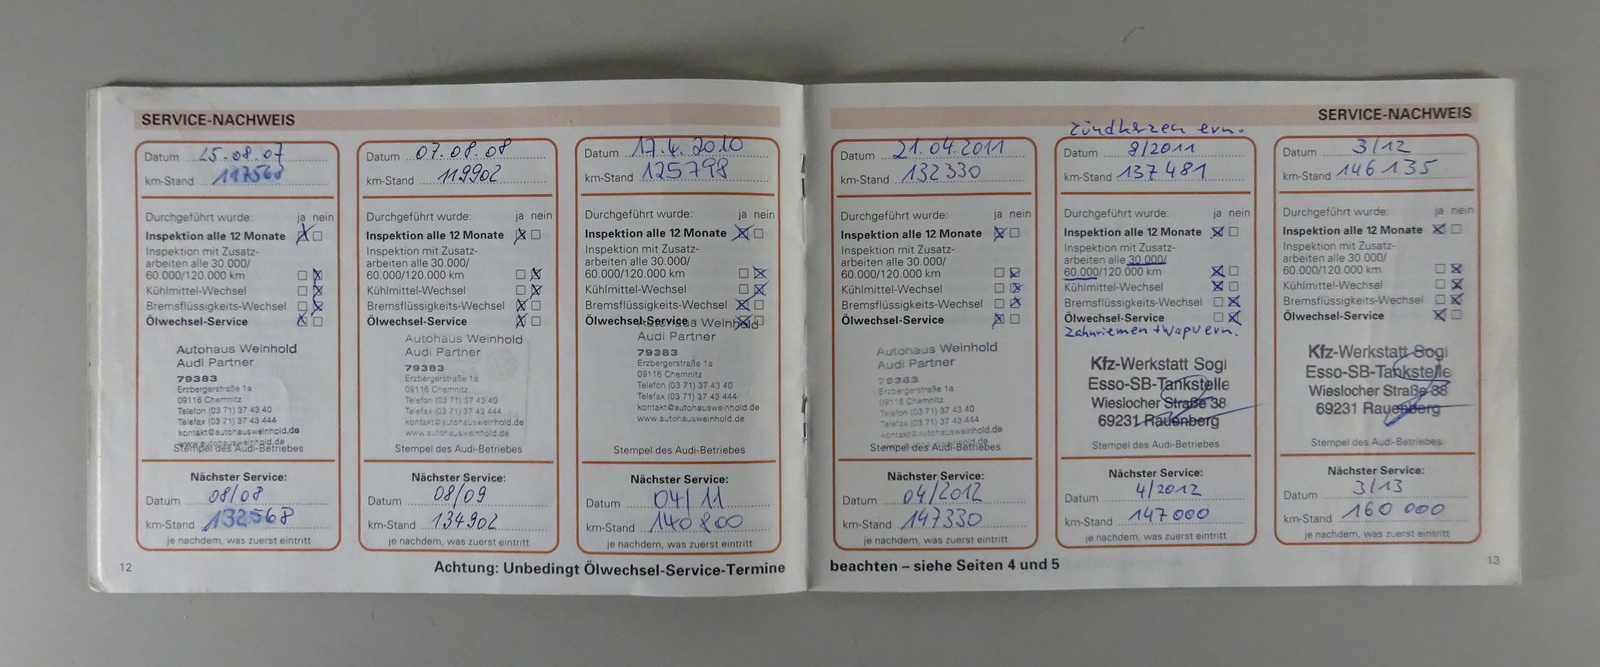 SERVICE-NACHWEIS
Datum 25.08.07
km-Stand 117568
Durchgeführt wurde: ja nein
Inspektion alle 12 Monate
Inspektion mit Zusatz-
arbeiten alle 30.000/
60.000/120.000 km
Kühlmittel-Wechsel
Bremsflüssigkeits-Wechsel
Ölwechsel-Service
Autohaus Weinhold
Audi Partner
79383
Erzbergerstraße 1a
09116 Chemnitz
Telefon (03 71) 37 43 40
Telefax (03 71) 37 43 444
kontakt@autohausweinhold.de
www.autohausweinhold.de
Stempel des Audi-Betriebes
Nächster Service:
Datum 08/08
km-Stand 132568
je nachdem, was zuerst eintritt
Datum 07.08.08
km-Stand 119902
Durchgeführt wurde: ja nein
Inspektion alle 12 Monate
Inspektion mit Zusatz-
arbeiten alle 30.000/
60.000/120.000 km
Kühlmittel-Wechsel
Bremsflüssigkeits-Wechsel
Ölwechsel-Service
Autohaus Weinhold
Audi Partner
79383
Erzbergerstraße 1a
09116 Chemnitz
Telefon (03 71) 37 43 40
Telefax (03 71) 37 43 444
kontakt@autohausweinhold.de
www.autohausweinhold.de
Stempel des Audi-Betriebes
Nächster Service:
Datum 08/09
km-Stand 134902
je nachdem, was zuerst eintritt
Datum 17.4.2010
km-Stand 125798
Durchgeführt wurde: ja nein
Inspektion alle 12 Monate
Inspektion mit Zusatz-
arbeiten alle 30.000/
60.000/120.000 km
Kühlmittel-Wechsel
Bremsflüssigkeits-Wechsel
Ölwechsel-Service
Autohaus Weinhold
Audi Partner
79383
Erzbergerstraße 1a
09116 Chemnitz
Telefon (03 71) 37 43 40
Telefax (03 71) 37 43 444
kontakt@autohausweinhold.de
www.autohausweinhold.de
Stempel des Audi-Betriebes
Nächster Service:
Datum 04/11
km-Stand 140800
je nachdem, was zuerst eintritt
12
Achtung: Unbedingt Ölwechsel-Service-Termine
SERVICE-NACHWEIS
Datum 21.04.2011
km-Stand 132330
Durchgeführt wurde: ja nein
Inspektion alle 12 Monate
Inspektion mit Zusatz-
arbeiten alle 30.000/
60.000/120.000 km
Kühlmittel-Wechsel
Bremsflüssigkeits-Wechsel
Ölwechsel-Service
Autohaus Weinhold
Audi Partner
79383
Erzbergerstraße 1a
09116 Chemnitz
Telefon (03 71) 37 43 40
Telefax (03 71) 37 43 444
kontakt@autohausweinhold.de
www.autohausweinhold.de
Stempel des Audi-Betriebes
Nächster Service:
Datum 04/2012
km-Stand 147330
je nachdem, was zuerst eintritt
Zündkerzen ern.
Datum 9/2011
km-Stand 137481
Durchgeführt wurde: ja nein
Inspektion alle 12 Monate
Inspektion mit Zusatz-
arbeiten alle 30.000/
60.000/120.000 km
Kühlmittel-Wechsel
Bremsflüssigkeits-Wechsel
Ölwechsel-Service
Zahnriemen + Wapu ern.
Kfz-Werkstatt Sogi
Esso-SB-Tankstelle
Wieslocher Straße 38
69231 Rauenberg
Stempel des Audi-Betriebes
Nächster Service:
Datum 4/2012
km-Stand 147000
je nachdem, was zuerst eintritt
Datum 3/12
km-Stand 146135
Durchgeführt wurde: ja nein
Inspektion alle 12 Monate
Inspektion mit Zusatz-
arbeiten alle 30.000/
60.000/120.000 km
Kühlmittel-Wechsel
Bremsflüssigkeits-Wechsel
Ölwechsel-Service
Kfz-Werkstatt Sogi
Esso-SB-Tankstelle
Wieslocher Straße 38
69231 Rauenberg
Stempel des Audi-Betriebes
Nächster Service:
Datum 3/13
km-Stand 160 000
je nachdem, was zuerst eintritt
beachten – siehe Seiten 4 und 5
13